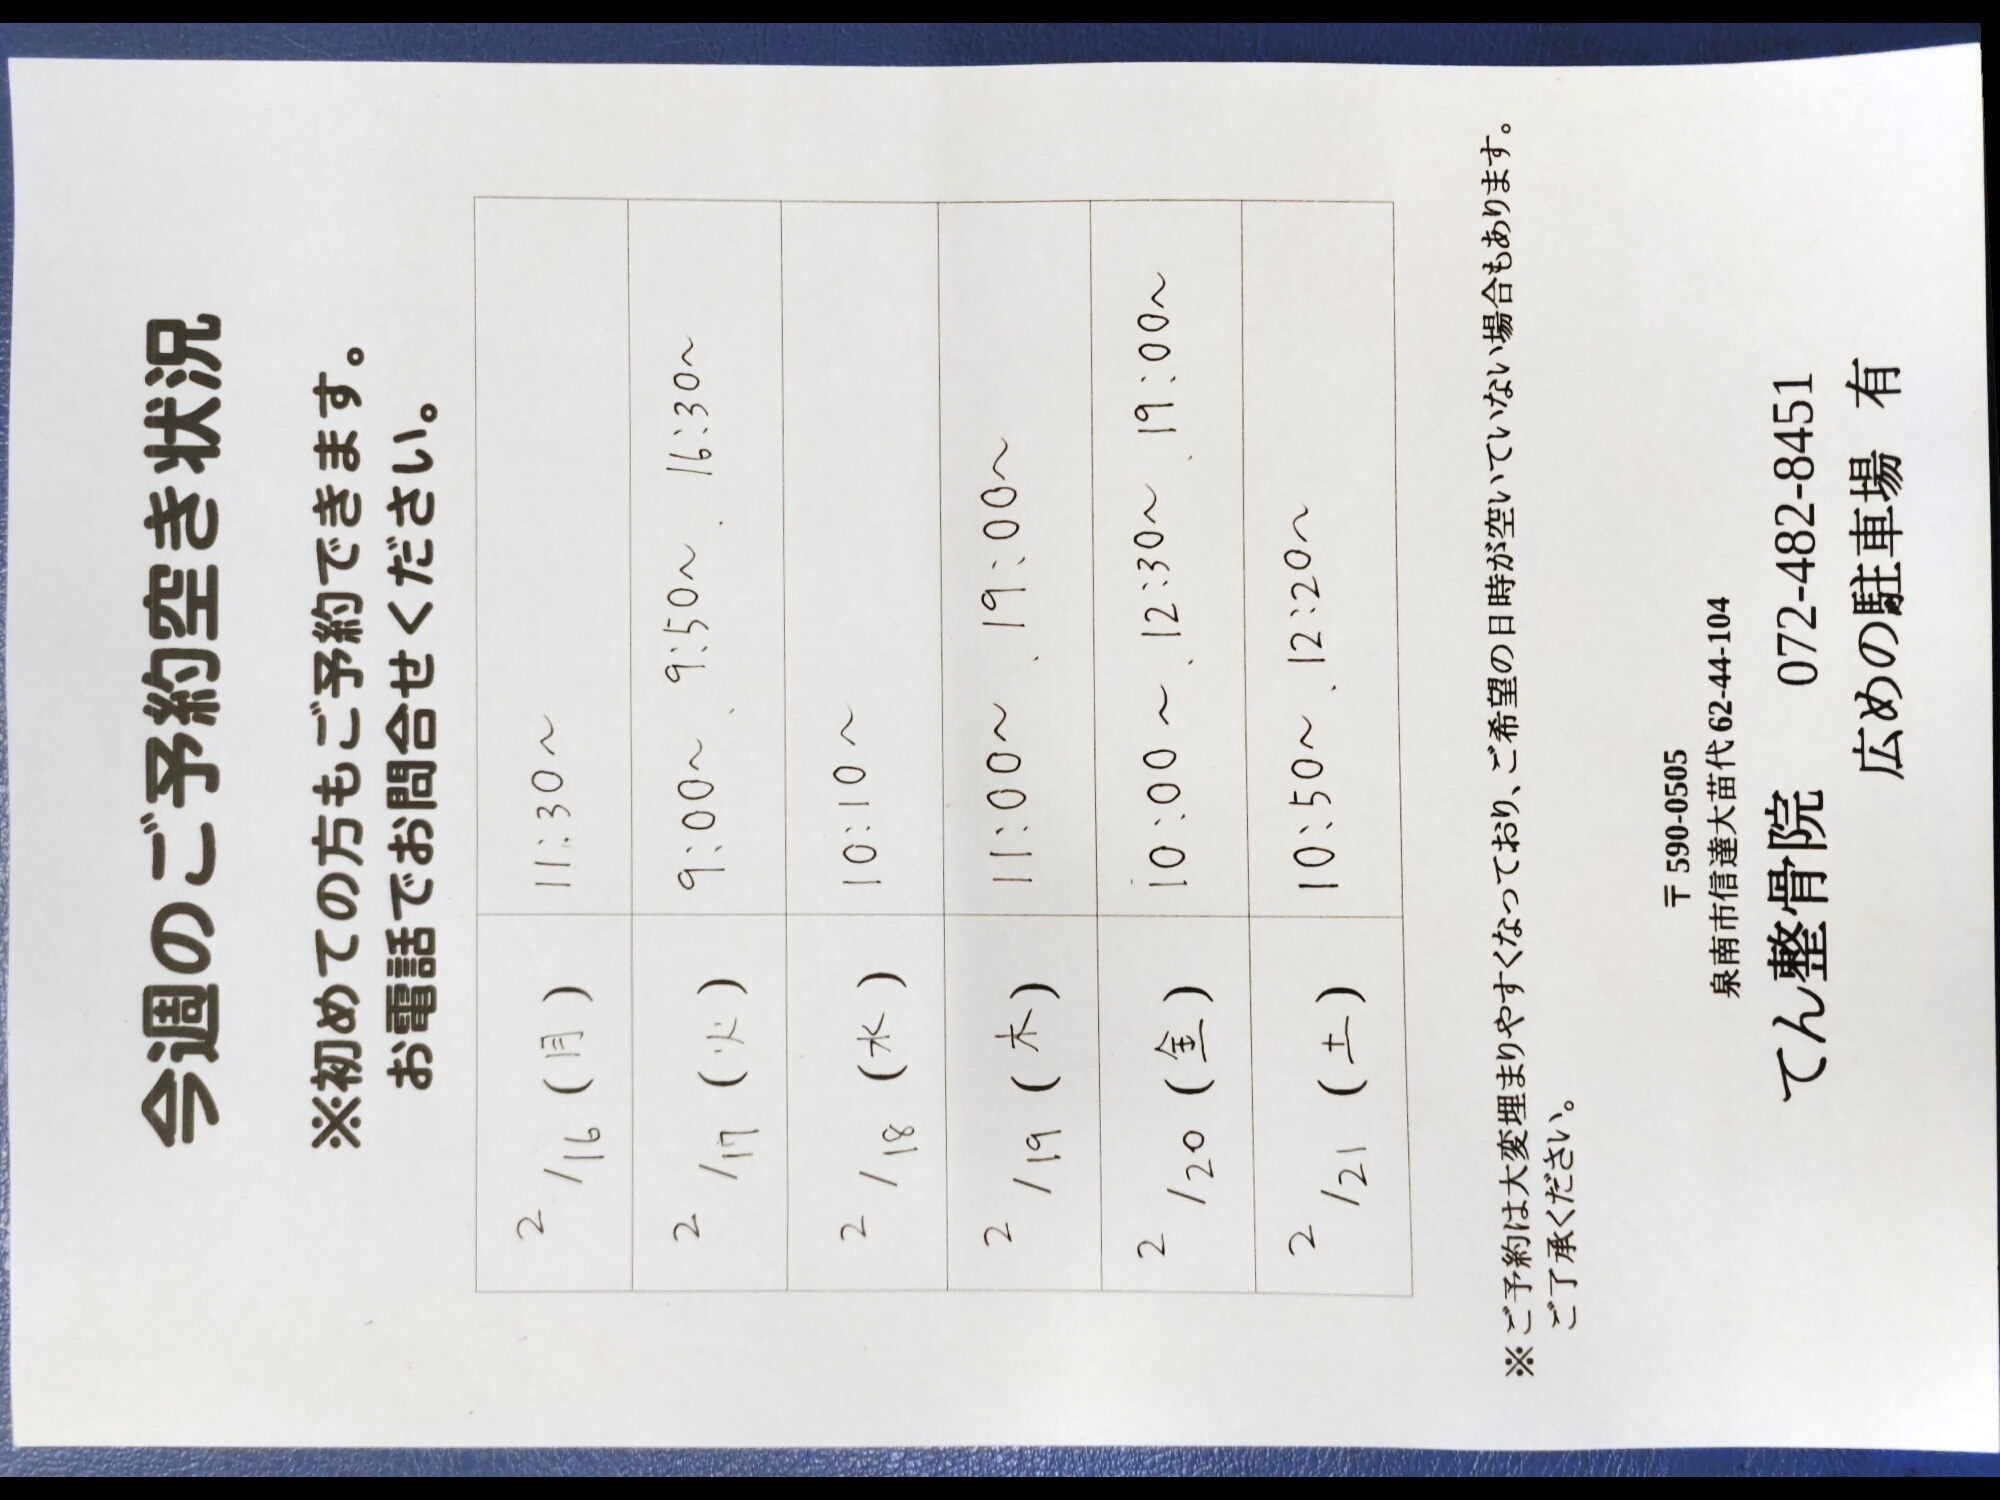 今週のご予約空き状況
※初めての方もご予約できます。
お電話でお問合せください。
2/16(月) 11:30～
2/17(火) 9:00～、9:50～、16:30～
2/18(水) 10:10～
2/19(木) 11:00～、19:00～
2/20(金) 10:00～、12:30～、19:00～
2/21(土) 10:50～、12:20～
※ご予約は大変埋まりやすくなっており、ご希望の日時が空いていない場合もあります。
ご了承ください。
〒590-0505
泉南市信達大苗代 62-44-104
てん整骨院 072-482-8451
広めの駐車場 有